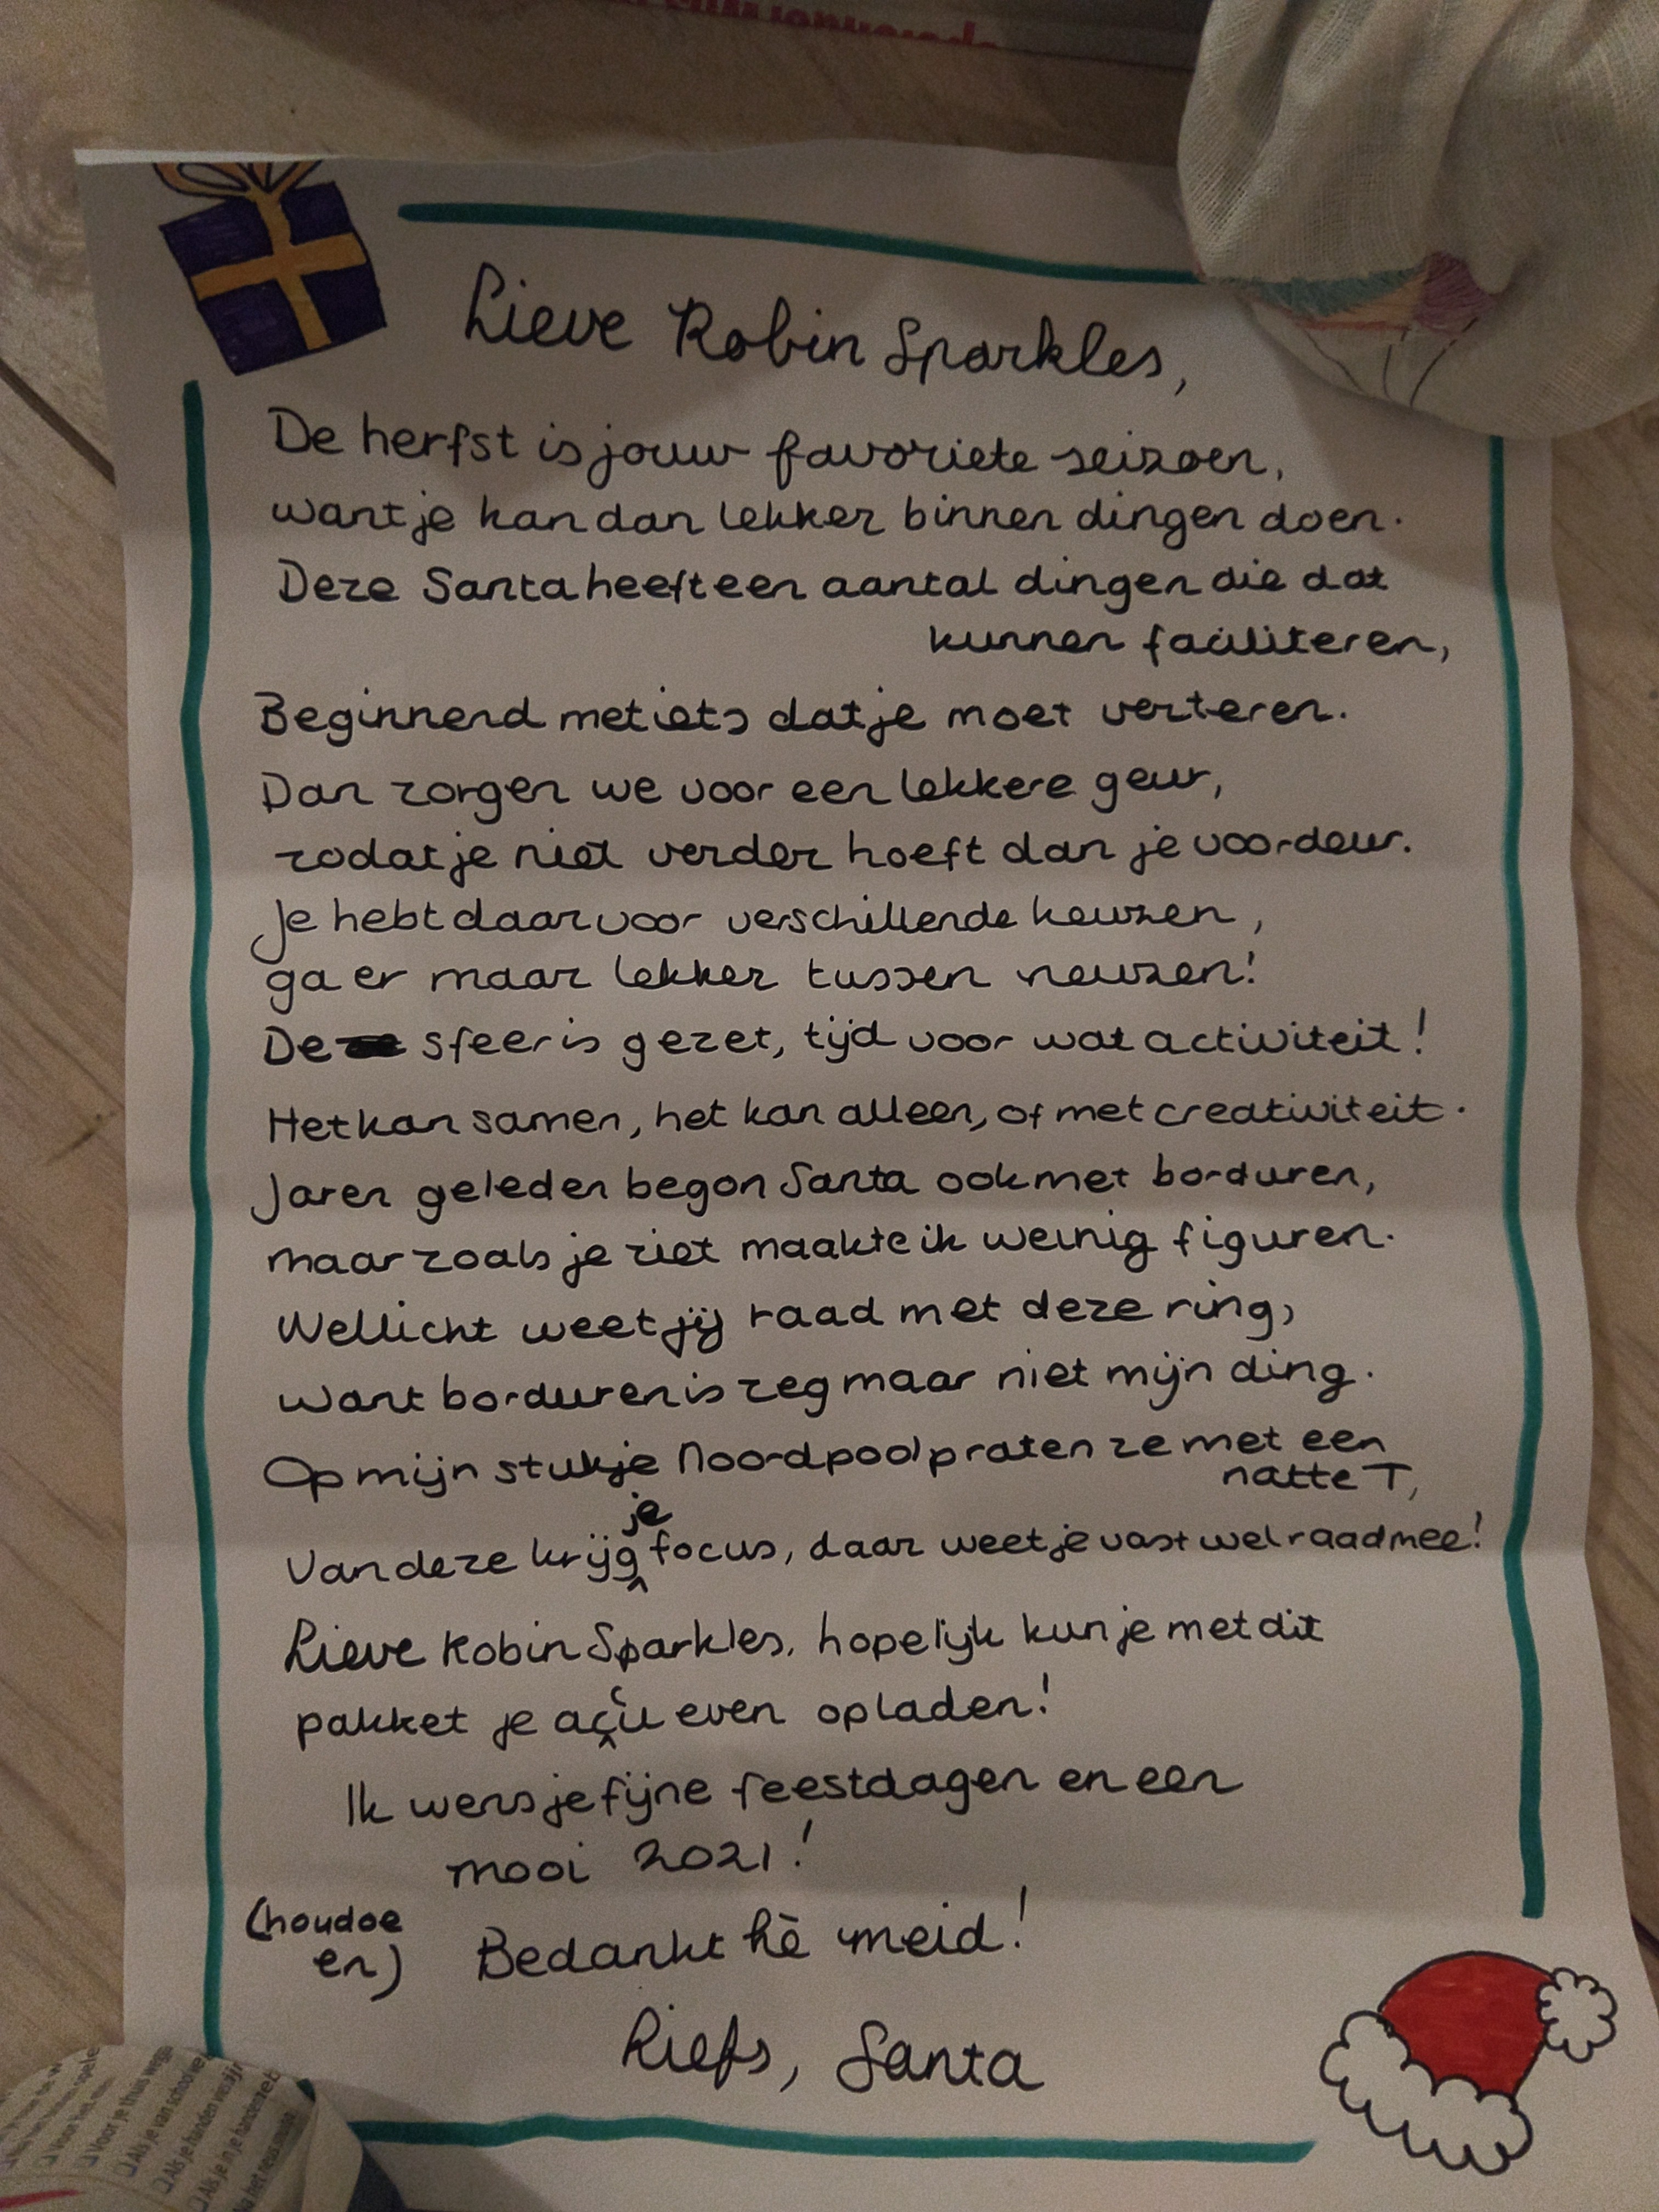 Lieve Robin Sparkles,
De herfst is jouw favoriete seizoen,
want je kan dan lekker binnen dingen doen.
Deze Santa heeft een aantal dingen die dat
kunnen faciliteren,
Beginnend met iets dat je moet verteren.
Dan zorgen we voor een lekkere geur,
zodat je niet verder hoeft dan je voordeur.
Je hebt daar voor verschillende keuzen,
ga er maar lekker tussen neuzen!
De sfeer is gezet, tijd voor wat activiteit!
Het kan samen, het kan alleen, of met creativiteit.
Jaren geleden begon Santa ook met borduren,
maar zoals je ziet maakte ik weinig figuren.
Wellicht weet jij raad met deze ring,
want borduren is zeg maar niet mijn ding.
Op mijn stukje Noordpool praten ze met een
natte T,
Van deze krijg je focus, daar weet je vast wel raad mee!
Lieve Robin Sparkles, hopelijk kun je met dit
pakket je accu even opladen!
Ik wens je fijne feestdagen en een
mooi 2021!
(houdoe
en) Bedankt hè meid!
Liefs, Santa
Voor je thuis
Als je van school
Als je handen
Als je in je handen